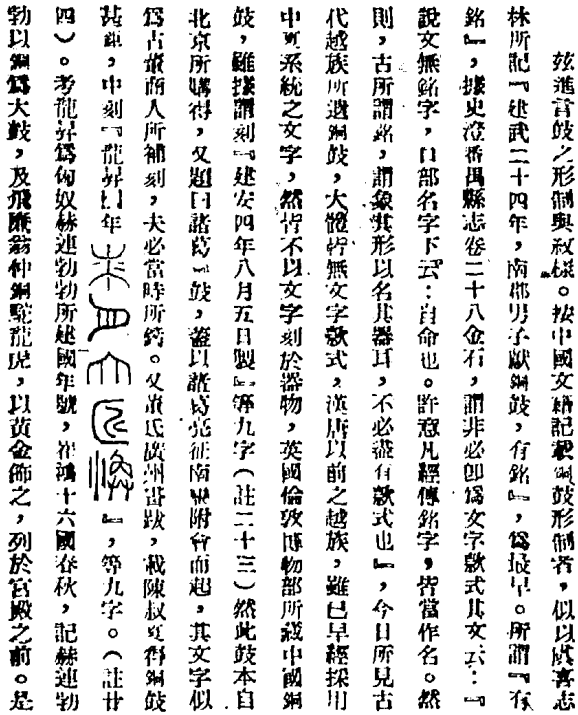 茲進言鼓之形制與紋樣。按中國文籍記載銅鼓形制者，似以虞喜志
林所記『建武二十四年，南郡男子獻銅鼓，有銘』，爲最早。所謂『有
銘』，據史澄番禺縣志卷二十八金石，謂非必卽爲文字款式其文云：『
說文無銘字，口部名字下云：自命也。許意凡經傳銘字，皆當作名。然
則，古所謂銘，謂象其形以名其器耳，不必盡有款式也』，今日所見古
代越族所遺銅鼓，大體皆無文字款式，漢唐以前之越族，雖已早經採用
中夏系統之文字，然皆不以文字刻於器物，英國倫敦博物部所藏中國銅
鼓，雖據謂刻『建安四年八月五日製』等九字（註二十三）然此鼓本自
北京所購得，又題曰諸葛鼓，蓋以諸葛亮征南蠻附會而起，其文字似
爲古董商人所補刻，夫必當時所鑄。又董氏廣州書跋，載陳叔夏得銅鼓
甚鉅，中刻『龍昇年』，等九字。（註廿
四）。考龍昇爲匈奴赫連勃勃所建國年號，崔鴻十六國春秋，記赫連勃
勃以銅爲大鼓，及飛廉翁仲銅駝龍虎，以黃金飾之，列於宮殿之前。是